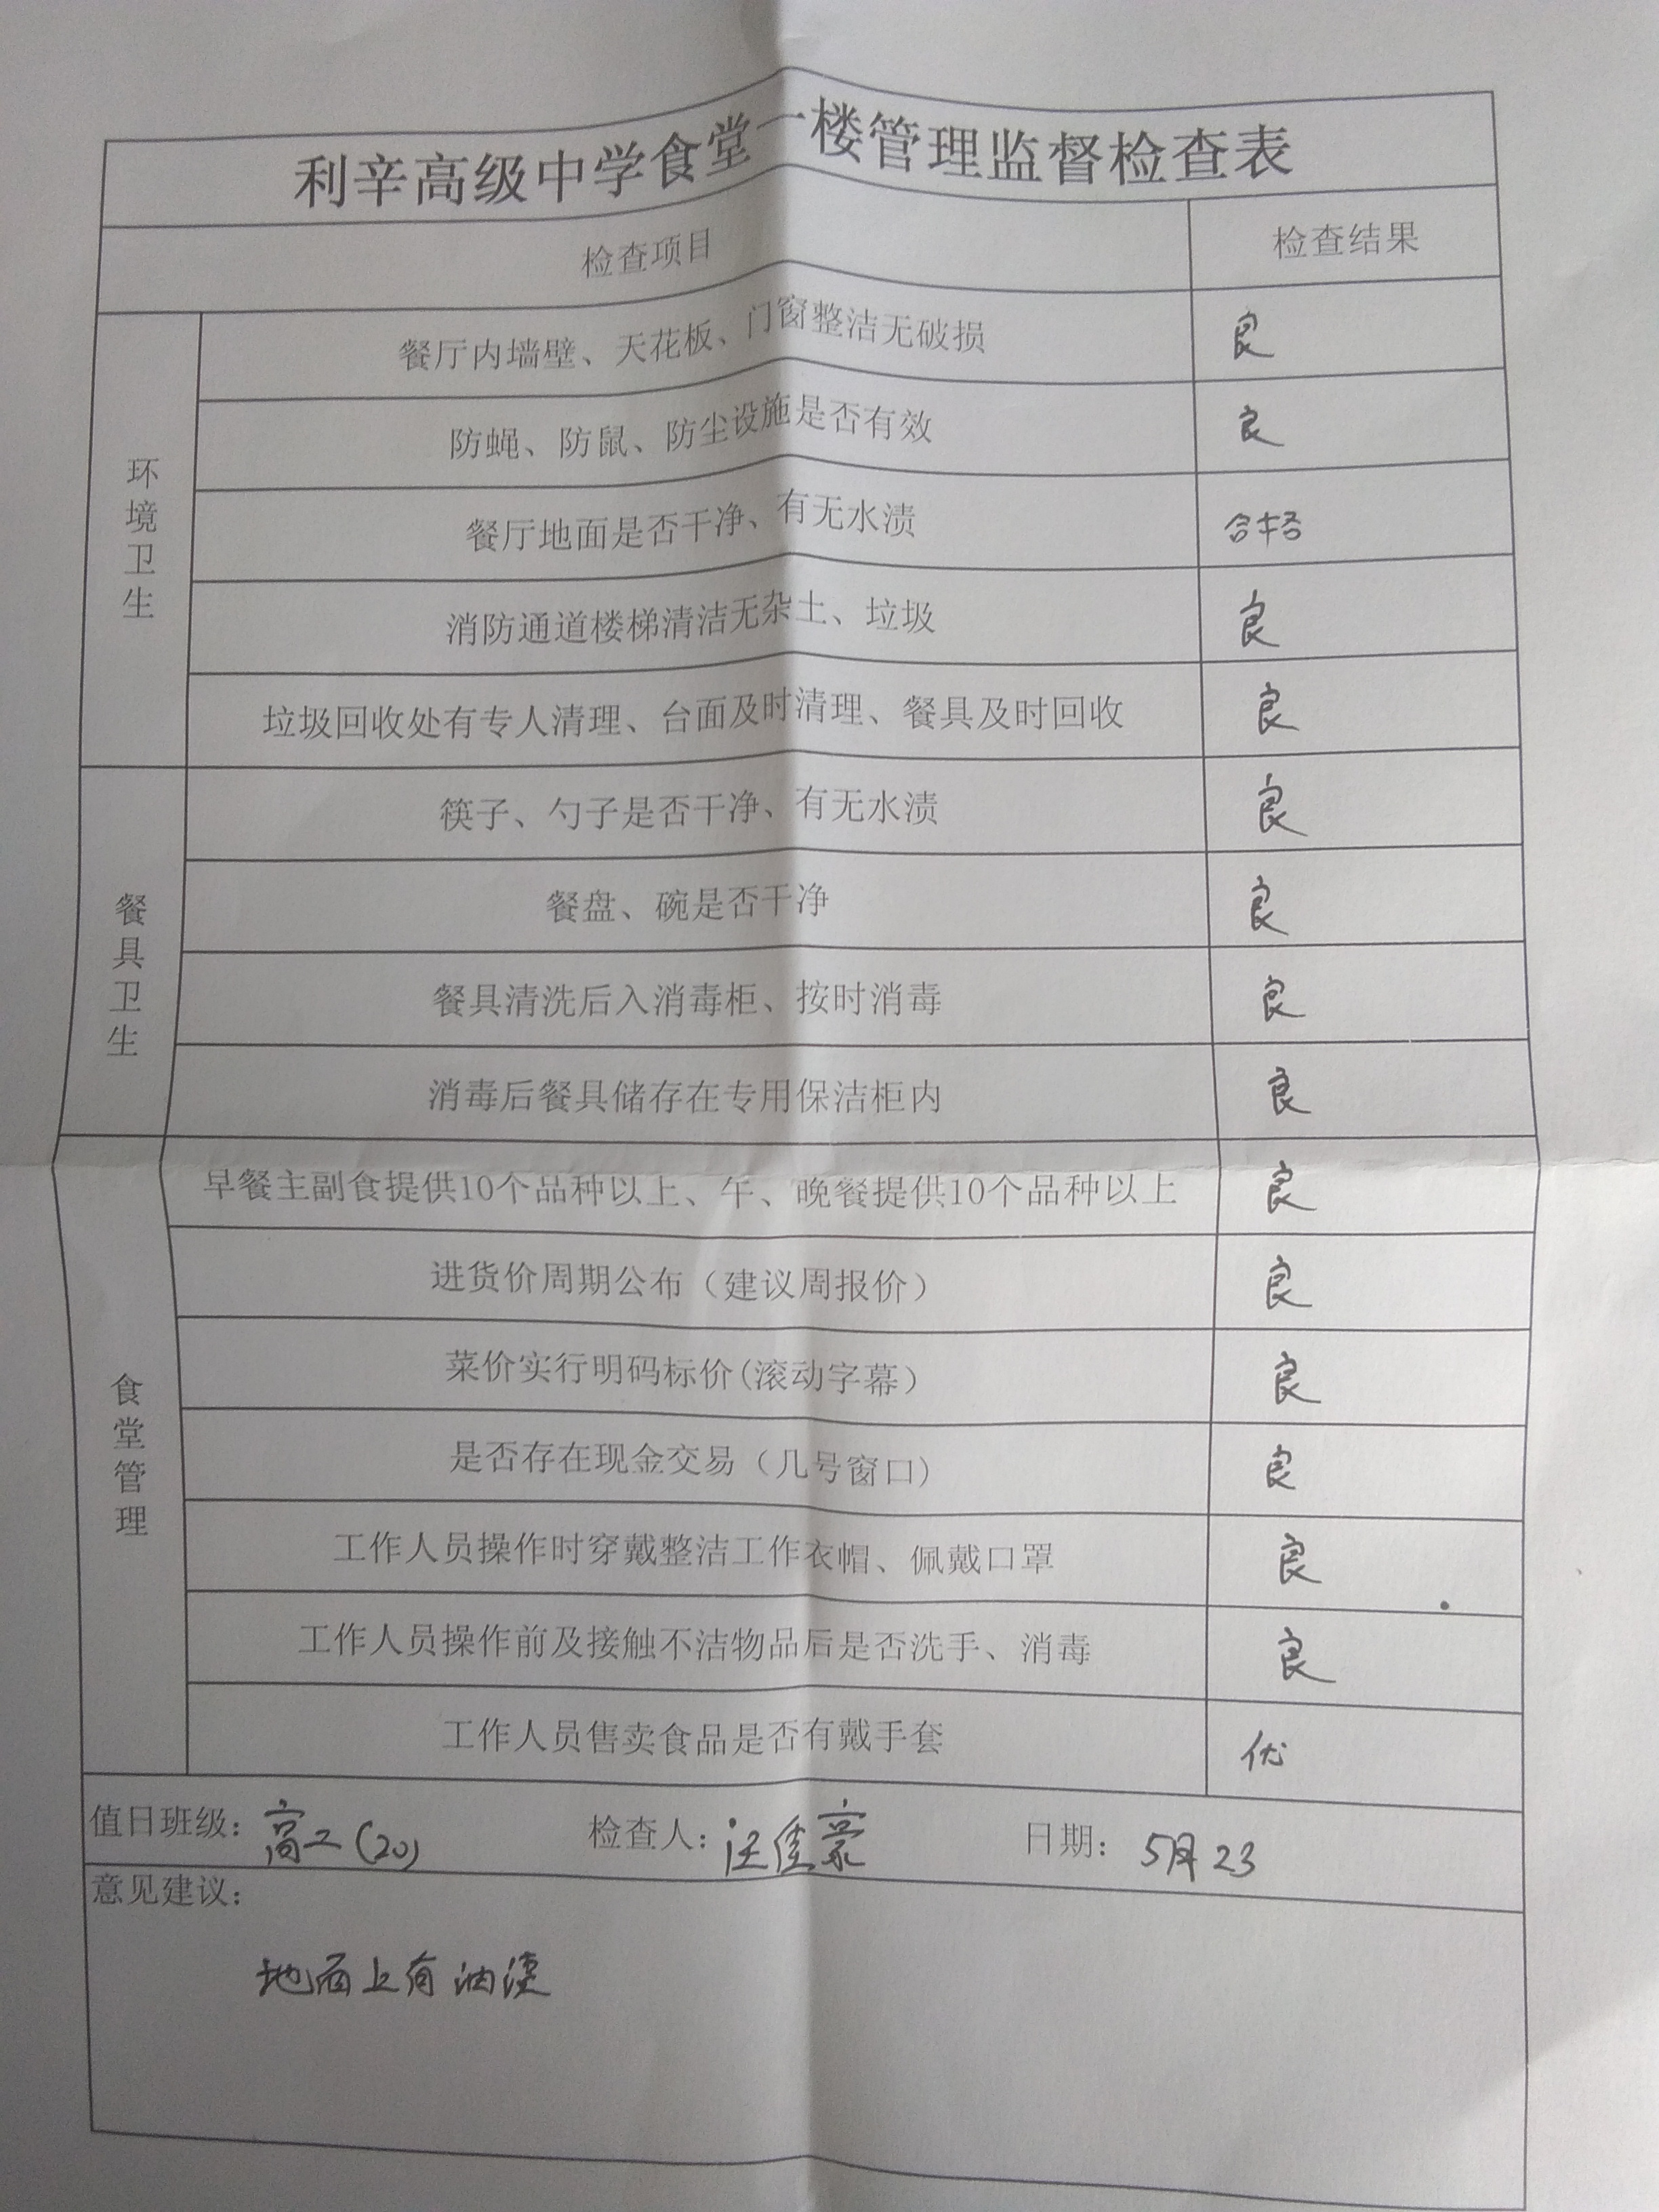 利辛高级中学食堂一楼管理监督检查表
检查项目 检查结果
环境卫生
餐厅内墙壁、天花板、门窗整洁无破损 良
防蝇、防鼠、防尘设施是否有效 良
餐厅地面是否干净、有无水渍 合格
消防通道楼梯清洁无杂土、垃圾 良
垃圾回收处有专人清理、台面及时清理、餐具及时回收 良
餐具卫生
筷子、勺子是否干净、有无水渍 良
餐盘、碗是否干净 良
餐具清洗后入消毒柜、按时消毒 良
消毒后餐具储存在专用保洁柜内 良
食堂管理
早餐主副食提供10个品种以上、午、晚餐提供10个品种以上 良
进货价周期公布（建议周报价） 良
菜价实行明码标价(滚动字幕） 良
是否存在现金交易（几号窗口） 良
工作人员操作时穿戴整洁工作衣帽、佩戴口罩 良
工作人员操作前及接触不洁物品后是否洗手、消毒 良
工作人员售卖食品是否有戴手套 优
值日班级：高二(20) 检查人：汪佳豪 日期：5月23
意见建议：
地面上有油渍